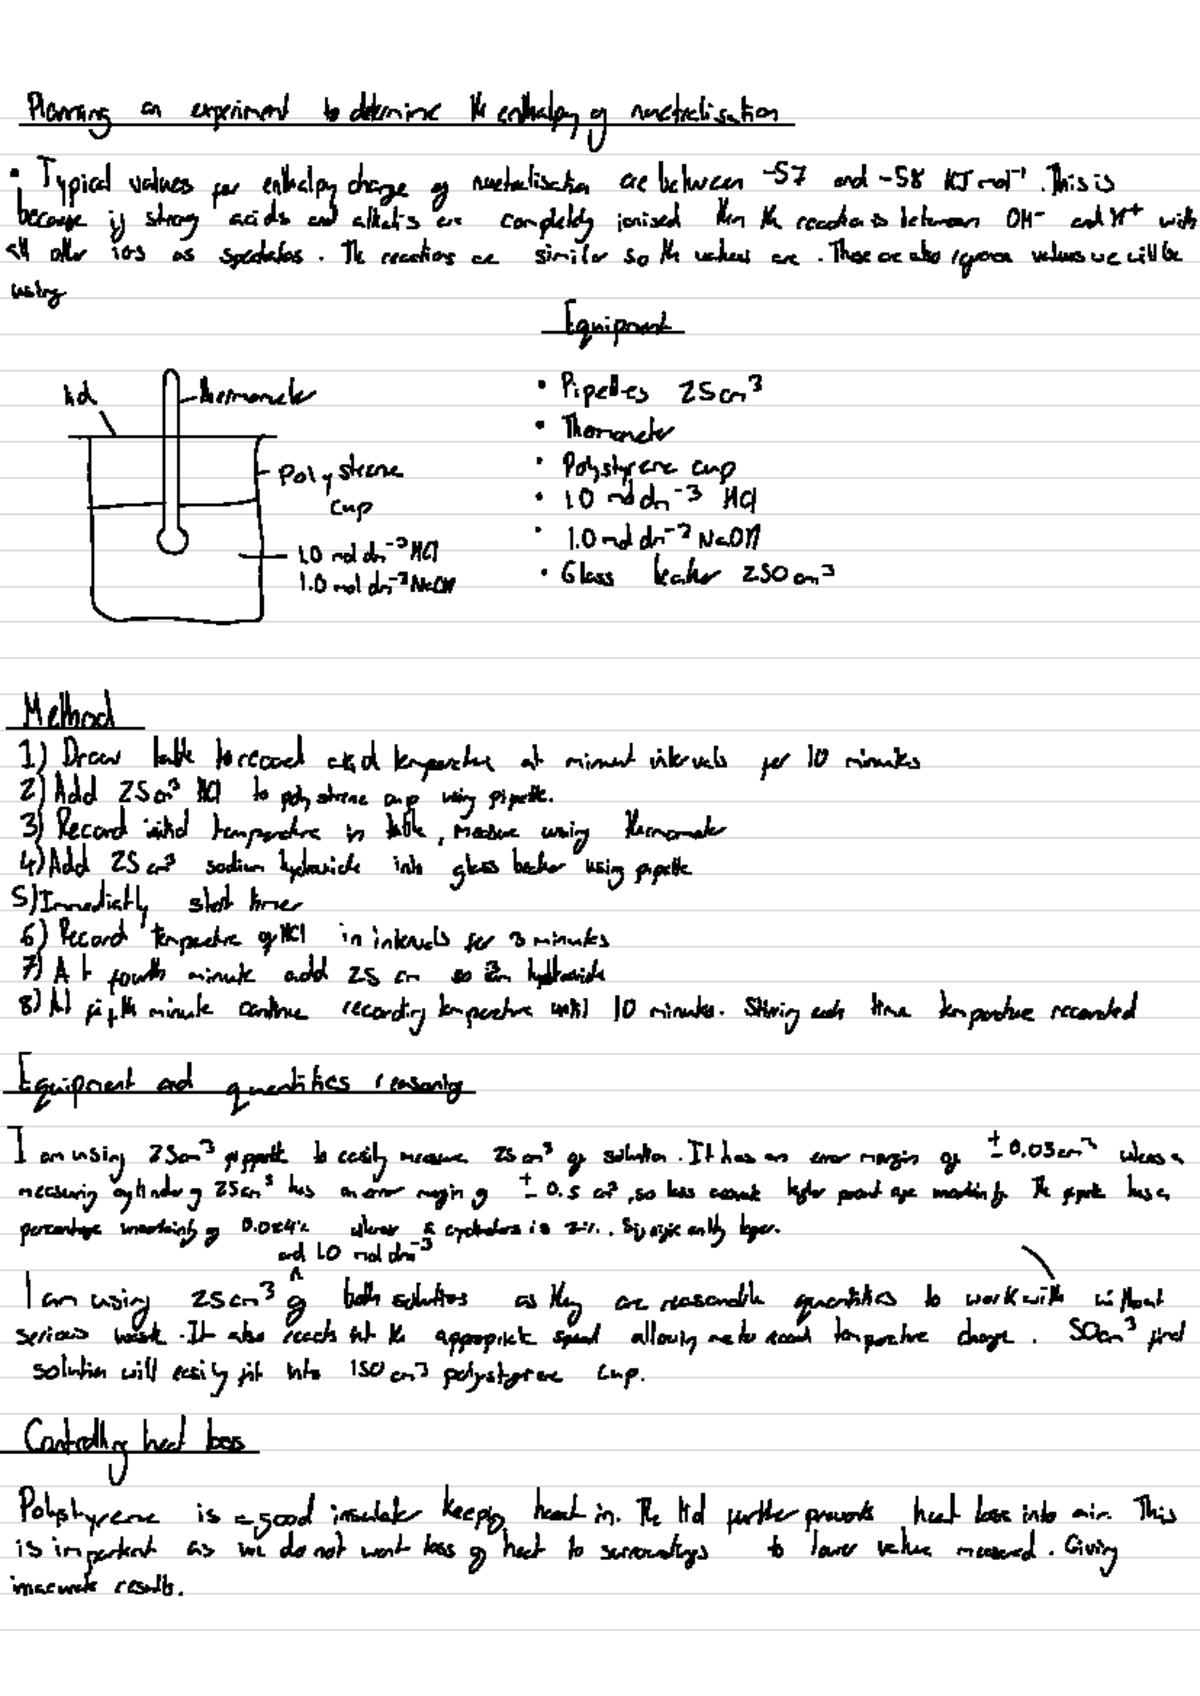 Planning an experiment to determine the enthalpy of neutralisation
• Typical values for enthalpy change of neutralisation are between -57 and -58 KJ mol⁻¹. This is
because if strong acids and alkali's are completely ionised then the reaction is between OH⁻ and H⁺ with
all other ions as spectators. The reactions are similar so the values are. These are also values we will be
using
Equipment
lid
thermometer
Polystrene
cup
1.0 mol dm⁻³ HCl
1.0 mol dm⁻³ NaOH
• Pipettes 25cm³
• Thermometer
• Polystyrene cup
• 1.0 mol dm⁻³ HCl
• 1.0 mol dm⁻³ NaOH
• Glass beaker 250cm³
Method
1) Draw table to record temperature at minute intervals for 10 minutes
2) Add 25cm³ HCl to polystrene cup using pipette.
3) Record initial temperature in table, measure using thermometer
4) Add 25cm³ sodium hydroxide into glass beaker using pipette
5) Immediatly start timer
6) Record temperature of HCl in intervals for 3 minutes
7) At fourth minute add 25 cm hydroxide
8) At fifth minute continue recording temperature until 10 minutes. Stirring each time temperature recorded
Equipment and quantities reasoning
I am using 25cm³ to easily measure 25cm³ of solution. It has an error margin of ± 0.03cm³
measuring cylinder of 25cm³ has an error margin of ± 0.5 cm³, so less accurate higher The pipette has a
percentage uncertainty of cylinders is 2%.
and 1.0 mol dm⁻³
I am using 25cm³ of both solutions as they are reasonable quantities to work with without
serious waste. It also reacts at the appropriate speed allowing me to record temperature change. 50cm³ final
solution will easily fit into 150cm³ polystyrene cup.
Controlling heat loss
Polystyrene is a good insulator keeping heat in. The lid further prevents heat loss into air. This
is important as we do not want loss of heat to surroundings to lower value measured. Giving
inaccurate results.